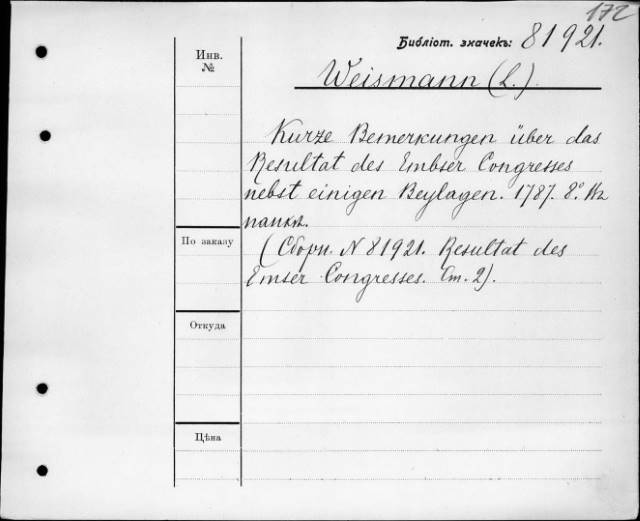 172
Библіот. значекъ: 81921.
Инв.
№
Weismann (L.).
Kurze Bemerkungen über das
Resultat des Embser Congresses
nebst einigen Beylagen. 1787. 8º. Въ
папкѣ.
По заказу
(Сборн. N 81921. Resultat des
Emser Congresses. Ст. 2).
Откуда
Цѣна